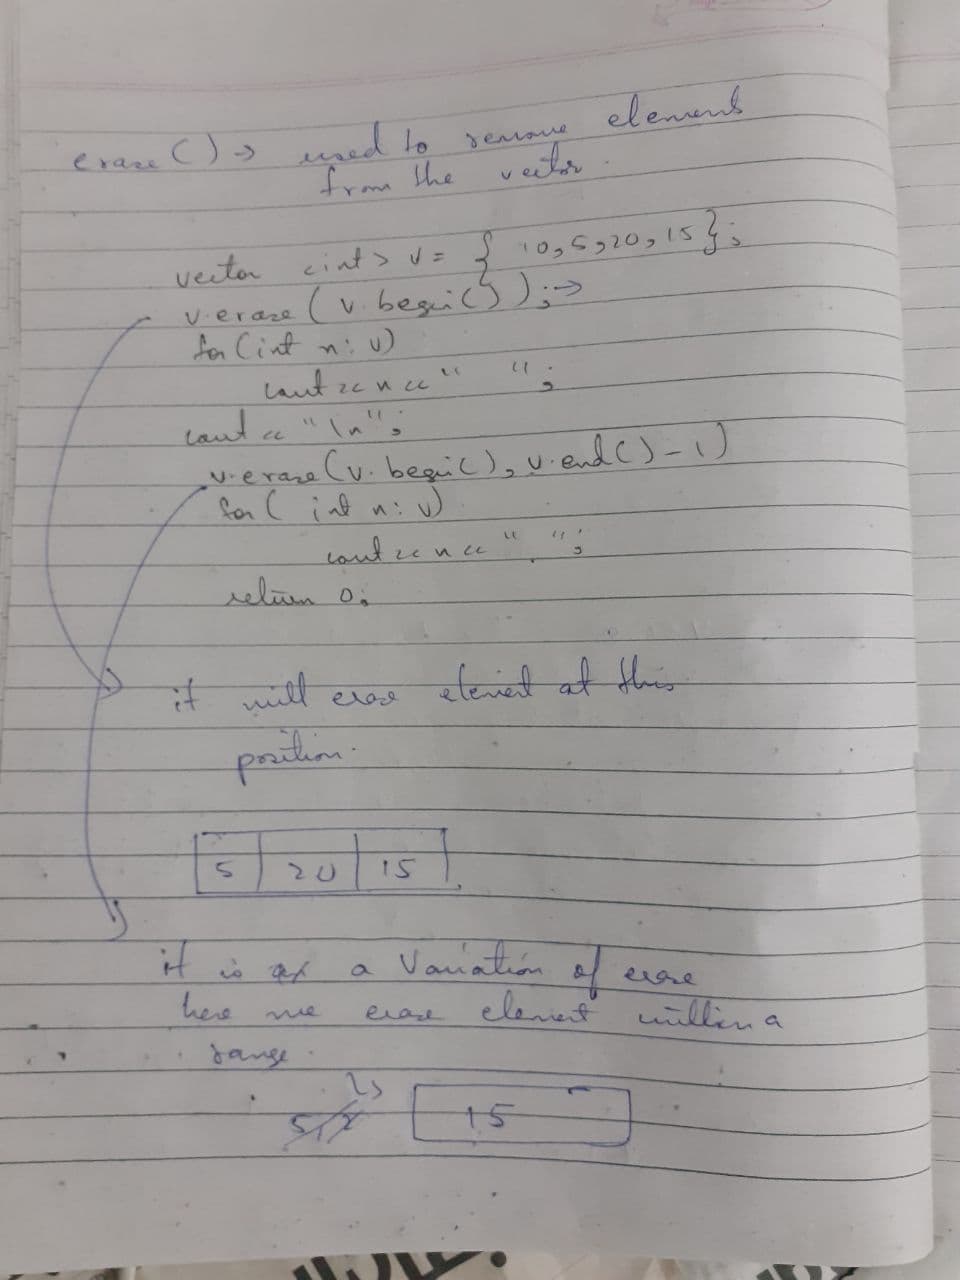 erase () → used to remove elements
from the vector.
vector <int> v = { 10,5,20,15};
v.erase ( v.begin() ); →
for (int n: v)
cout << n << "  ";
cout << "\n";
v.erase (v.begin(), v.end() - 1)
for ( int n: v)
cout << n << "  ";
return 0;
it will erase element at this
position.
5 20 15
it is a Variation of erase
here we erase element within a
range.
15